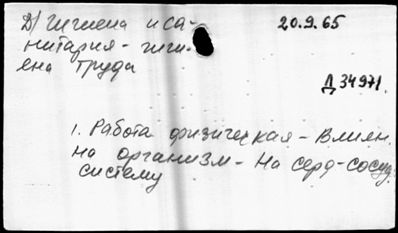 Д/ Гигиена и са-
нитария - гиги-
ена труда
20.9.65
Д 34971.
1. Работа физическая - Влиян.
на организм - На серд-сосуд.
систему